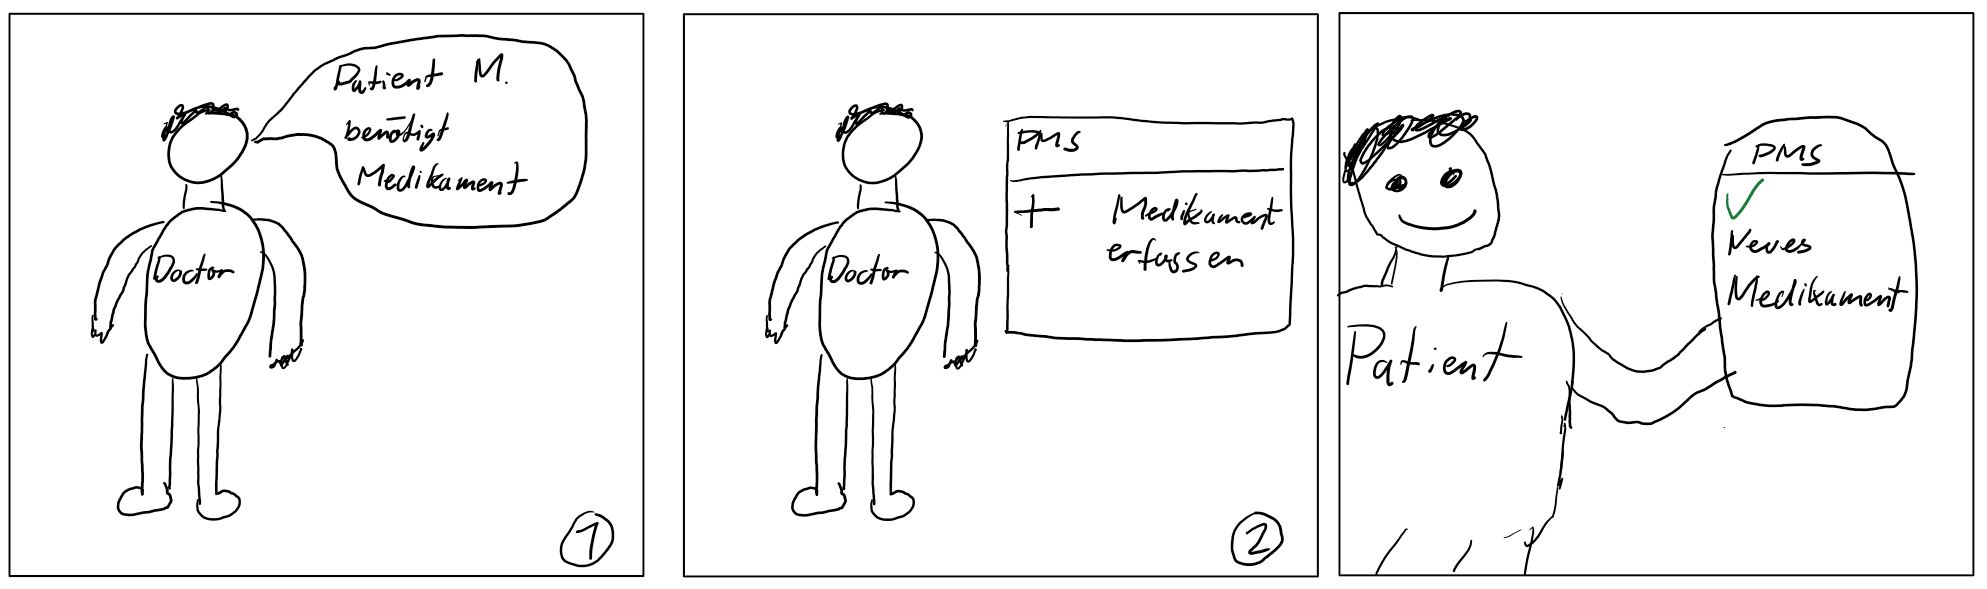 Patient M.
benötigt
Medikament
Doctor
1
PMS
+ Medikament
erfassen
Doctor
2
PMS
✓
Neues
Medikament
Patient